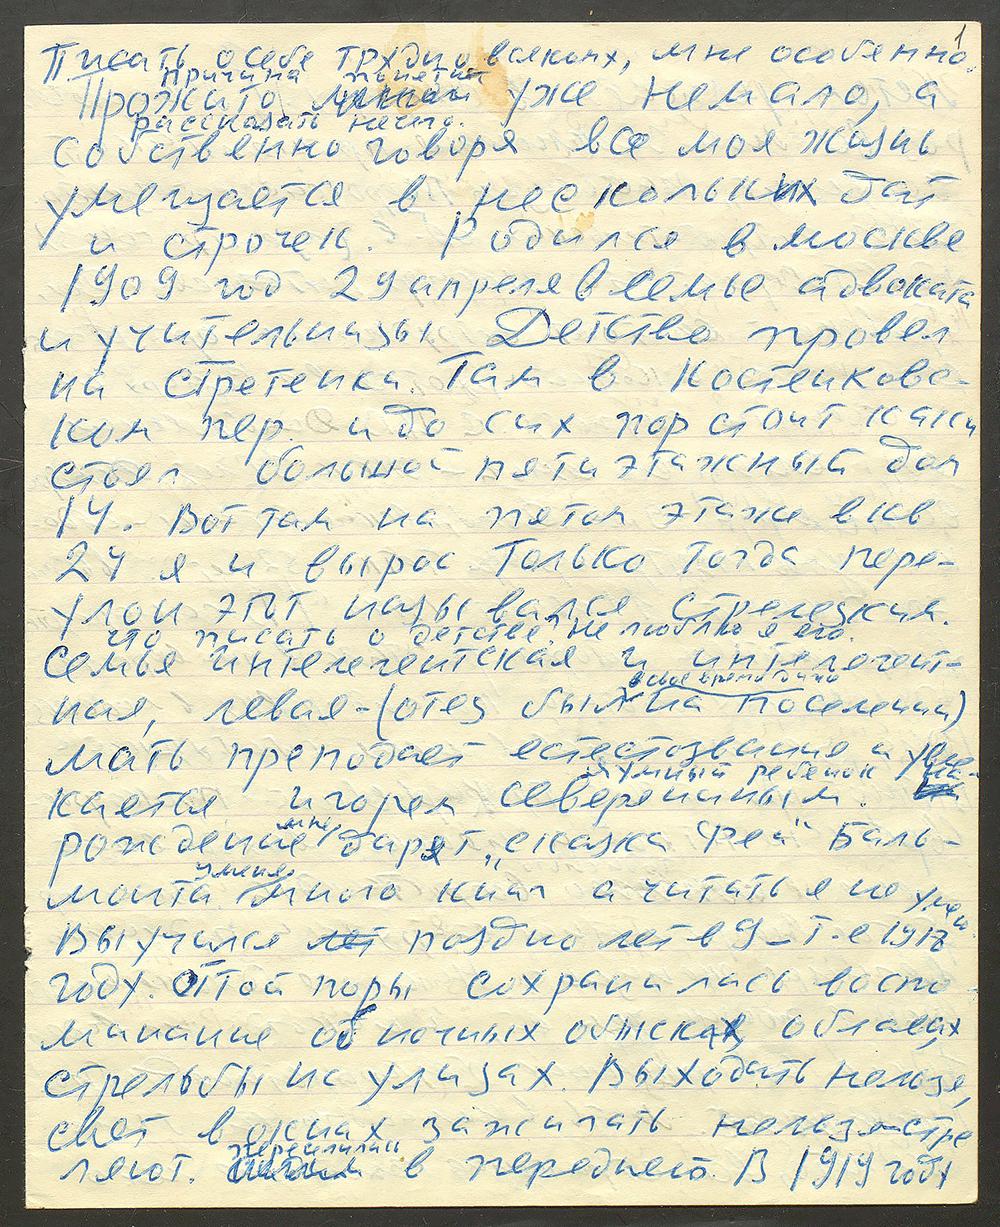 1
Писать о себе трудно всяким, мне особенно.
причина
Прожито уже немало, а
рассказать нечто.
Собственно говоря все моя жизнь
умещается в нескольких дат
и строчек. Родился в Москве
1909 год 29 апреля в семье адвоката
и учительницы Детство провел
на Стретенка. Там в Костенковс-
ком пер. и до сих пор стоит как и
стоял большой пятиэтажный дом
14. Вот там на пятом этаже в кв
24 я и вырос Только тогда пере-
улок этот назывался Стрелецкия.
что писать о детстве? Не люблю я его.
Семья интелегентская и интелегент-
ная, левая - (отец был на поселении)
в свое время
мать преподает естествознание и увле-
умный ребенок
кается игорем северениным. На
рождение мне дарят „сказка фей" Баль-
монта у меня много книг а читать я не умею
Выучился лет поздно лет в 9 - т.е 1917
году. От той поры сохранилась воспо-
минание об ночных обысках, облавах,
стрельбы на улицах. Выходать нельзя,
свет в окнах зажигать нельзя - стре
ляют. переселились в переднею. В 1919 году